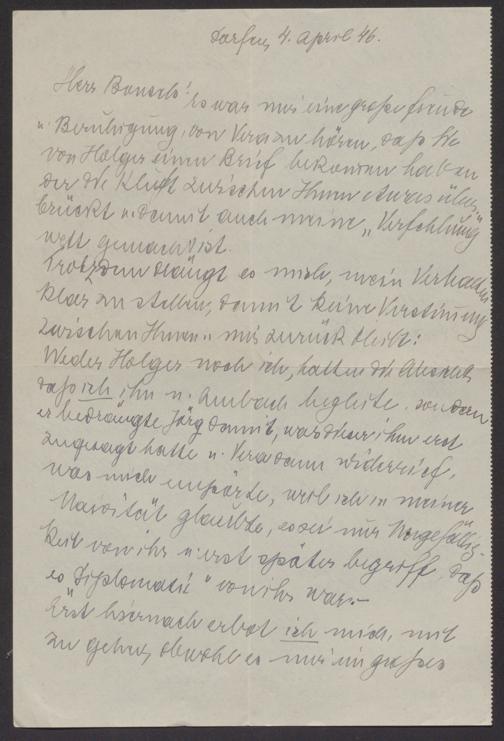 Dorfen, 4. April 46.
Herr Bonsels! Es war mir eine große Freude
u. Beruhigung, von Vera zu hören, daß Sie
von Holger einen Brief bekommen haben
der die Kluft zwischen Ihnen etwas über-
brückt u. damit auch meine „Verfehlung"
wett gemacht ist.
Trotzdem drängt es mich, mein Verhalten
klar zu stellen, damit keine Verstimmung
zwischen Ihnen u. mir zurück bleibt:
Weder Holger noch ich, hatten die Absicht,
daß ich ihn n. Ambach begleite. sondern
er bedrängte Jörg damit, was dieser ihm erst
zugesagt hatte u. Vera dann widerrief,
was mich empörte, weil ich in meiner
Naivität glaubte, es sei nur Ungefällig-
keit von ihr u. erst später begriff, daß
es „Diplomatie" von ihr war.-
Erst hiernach erbot ich mich, mit
zu gehen, obwohl es mir ein großes